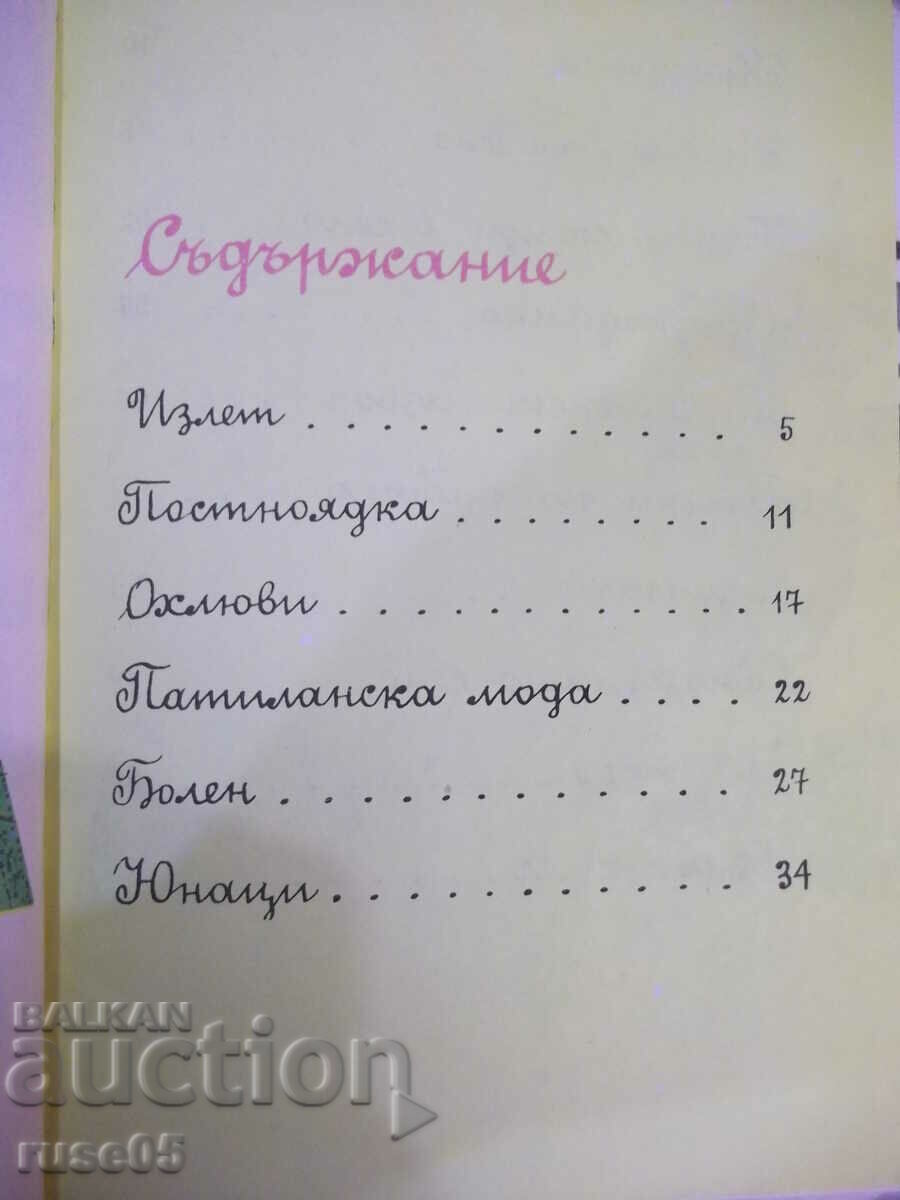 Съдържание
Излет . . . . . . . . . . . . 5
Постноядка . . . . . . . . 11
Охлюви . . . . . . . . . . . . . 17
Патиланска мода . . . . 22
Болен . . . . . . . . . . . . 27
Юнаци . . . . . . . . . . . 34
BALKAN
auction
ruse05